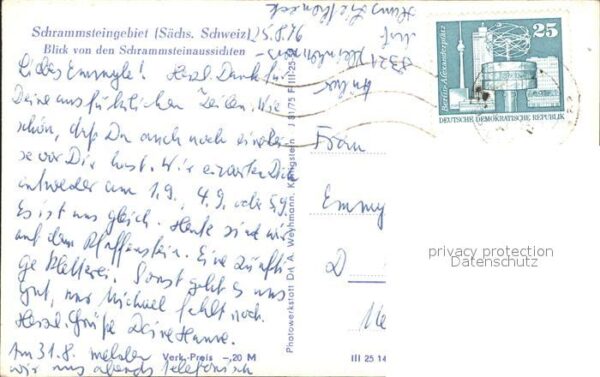 Schrammsteingebiet (Sächs. Schweiz)
Blick von den Schrammsteinaussichten
25.8.76
Liebes Emmyle! Herzl. Dank für
Deine ausführlichen Zeilen. Wie
schön, daß Du auch noch
vor Dir hast. Wir erwarten Dich
entweder am 1.9., 4.9. oder 5.9.
Es ist uns gleich. Heute sind wir
auf dem Pfaffenstein. Eine zünfti-
ge Kletterei. Sonst geht es uns
gut, nur Michael fehlt noch.
Herzl. Grüße Deine Hanne.
Am 31.8. melden
wir uns abends telefonisch
Verk.-Preis -,20 M
III 25 14
Photowerkstatt Dri A. Weyhmann, Königstein J 31/75 F III-25-
Frau
Emmy
D
Berlin-Alexanderplatz
25
DEUTSCHE DEMOKRATISCHE REPUBLIK
privacy protection
Datenschutz